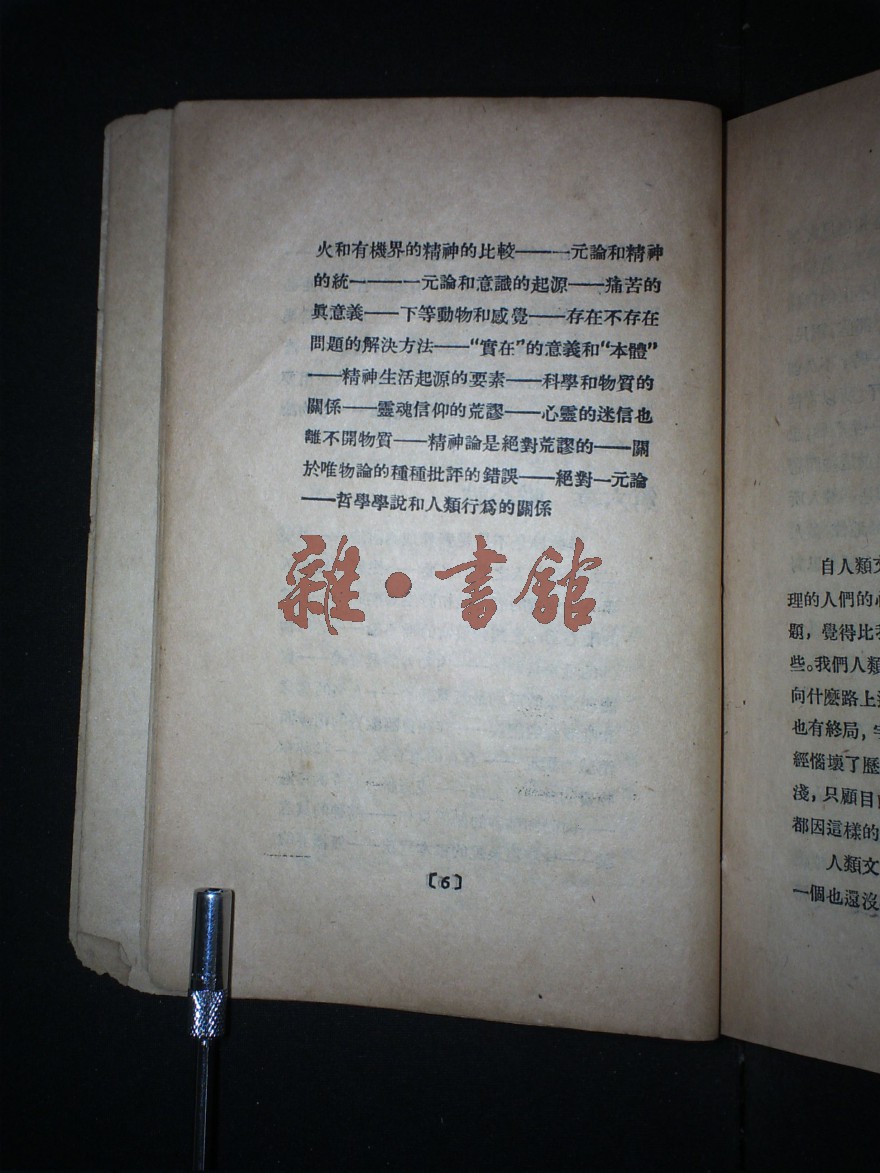 火和有機界的精神的比較——一元論和精神
的統一——一元論和意識的起源——痛苦的
眞意義——下等動物和感覺——存在不存在
問題的解決方法——“實在”的意義和“本體”
——精神生活起源的要素——科學和物質的
關係——靈魂信仰的荒謬——心靈的迷信也
離不開物質——精神論是絕對荒謬的——關
於唯物論的種種批評的錯誤——絕對一元論
——哲學學說和人類行爲的關係
雜·書館
〔6〕
自人類文
理的人們的心
題，覺得比
些。我們人類
向什麼路上
也有終局，
經惱壞了歷
淺，只顧目
都因這樣的
人類文
一個也還沒